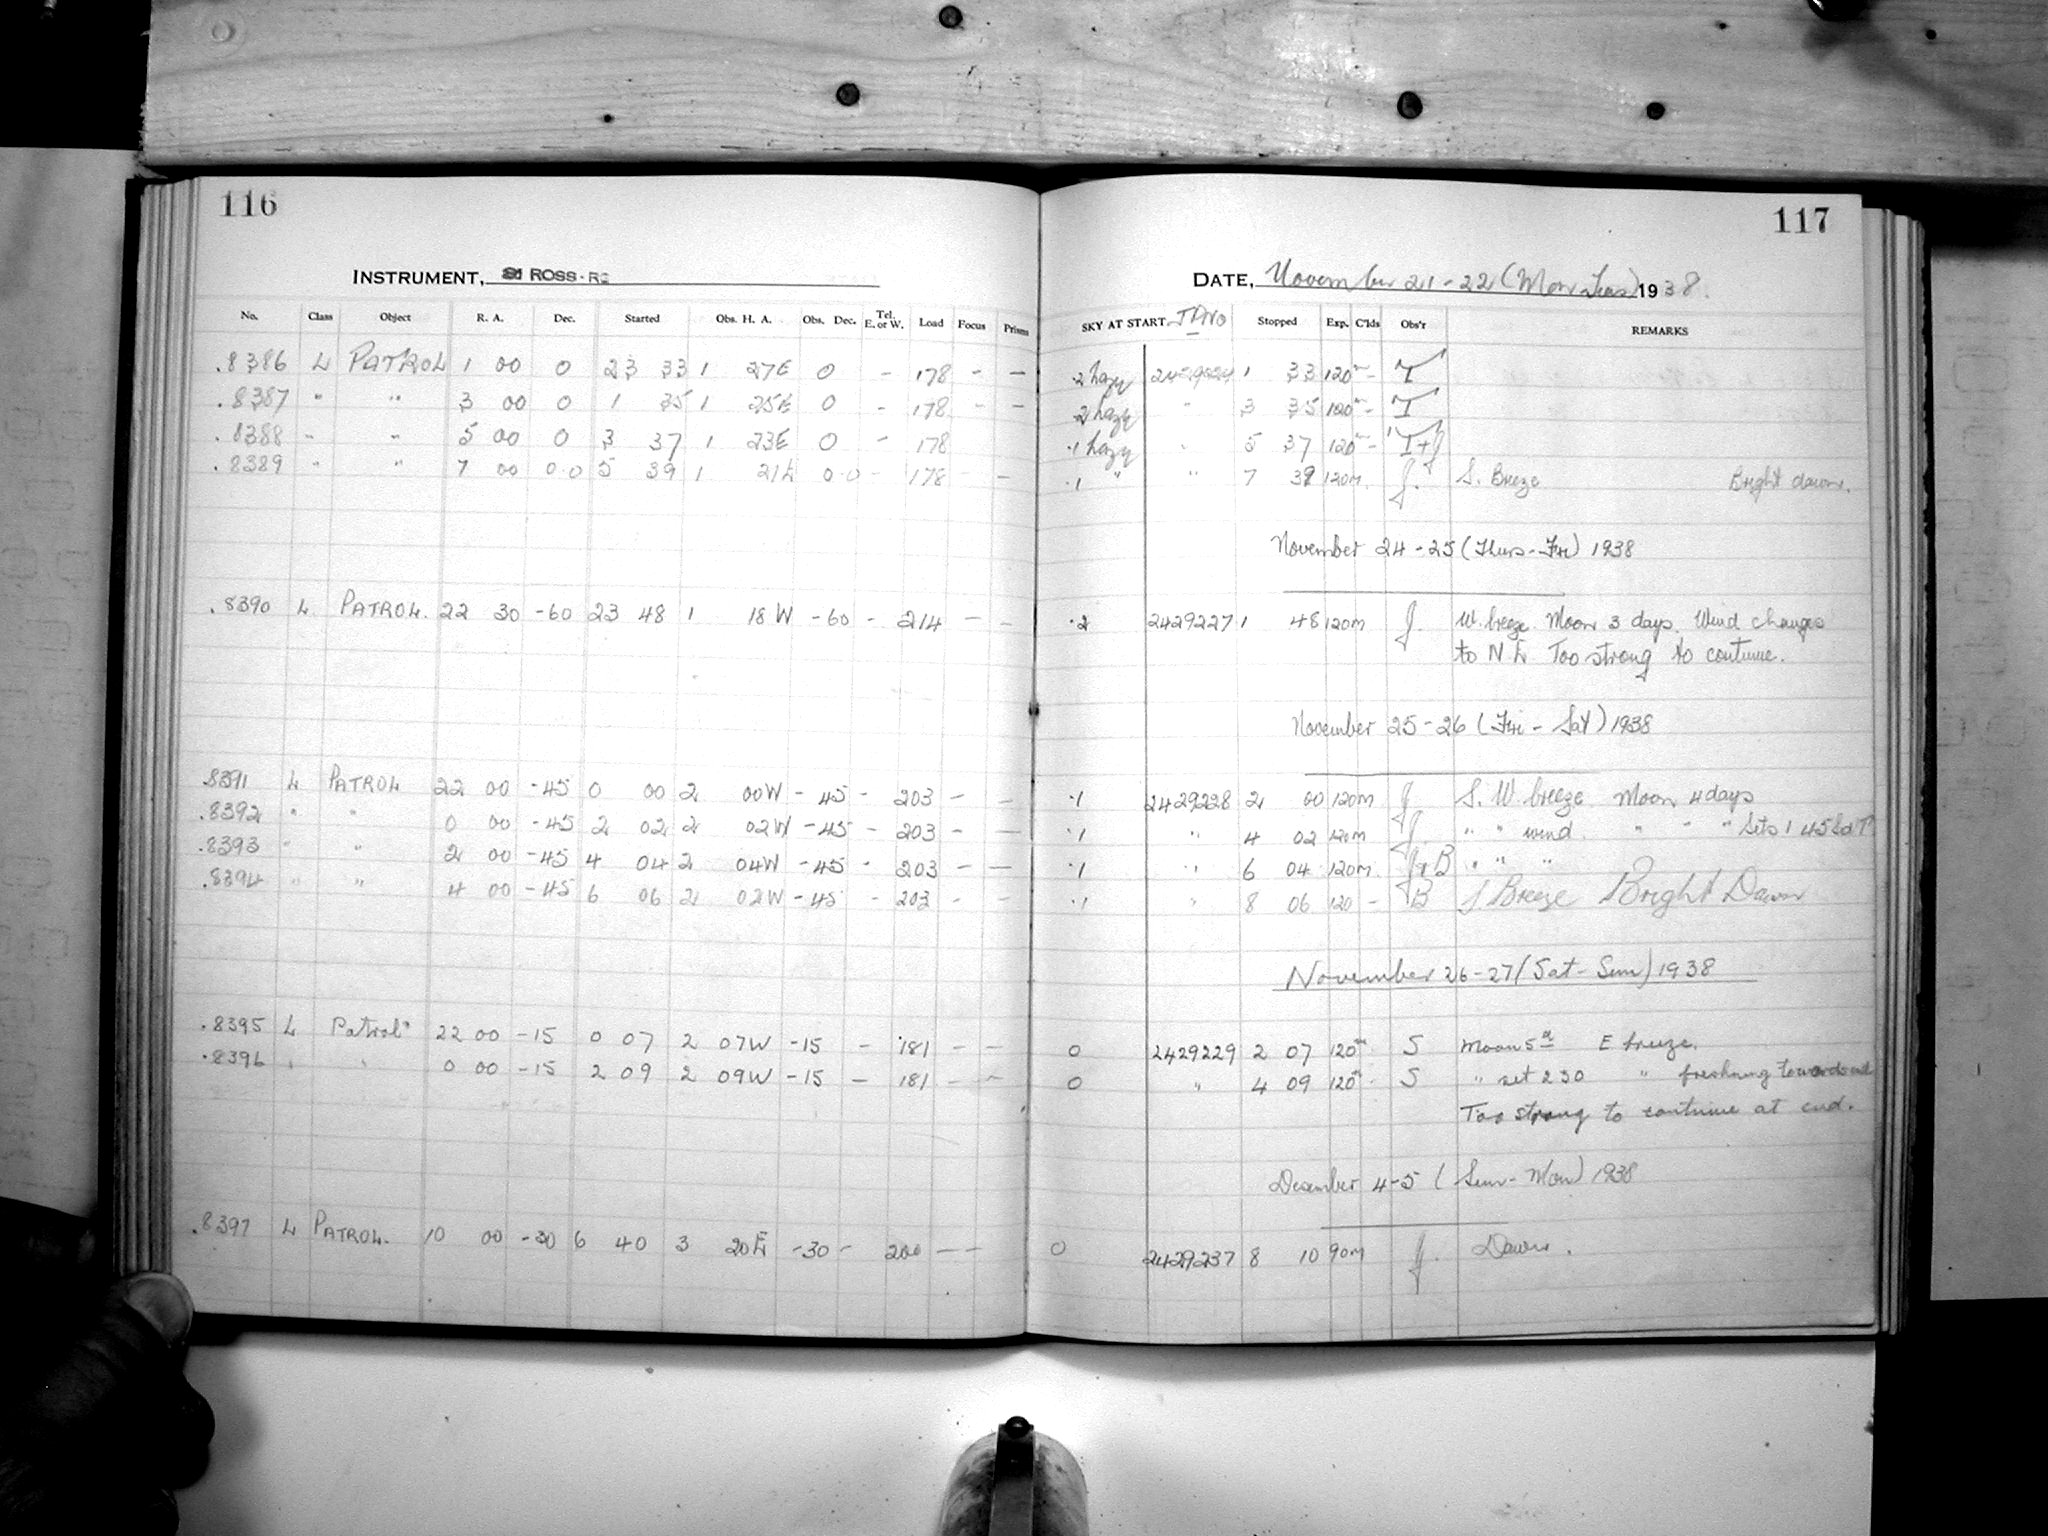 116
INSTRUMENT, ROSS-
No. Class Object R. A. Dec. Started Obs. H. A. Obs. Dec. Tel. E. or W. Load Focus Prisms
.8386 L PATROL 1 00 0 23 33 1 27E 0 - 178 - -
.8387 " " 3 00 0 1 35 1 25E 0 - 178 - -
.8388 " " 5 00 0 3 37 1 23E 0 - 178
.8389 " " 7 00 0.0 5 39 1 21E 0.0 - 178 -
.8390 L PATROL. 22 30 -60 23 48 1 18W -60 - 214 - -
.8391 L PATROL 22 00 -45 0 00 2 00W -45 - 203 - -
.8392 " " 0 00 -45 2 02 2 02W -45 - 203 - -
.8393 " " 2 00 -45 4 04 2 04W -45 - 203 - -
.8394 " " 4 00 -45 6 06 2 02W -45 - 203 - -
.8395 L Patrol 22 00 -15 0 07 2 07W -15 - 181 - -
.8396 " " 0 00 -15 2 09 2 09W -15 - 181 - -
.8397 L PATROL. 10 00 -30 6 40 3 20E -30 - 200 - -
117
DATE, November 21-22 (Mon Tues) 1938.
SKY AT START Stopped Exp. C'lds Obs'r REMARKS
.2 hazy 2429224 1 33 120m - T
.2 hazy " 3 35 120m - T
.1 hazy " 5 37 120m - T+J
.1 " " 7 39 120m. J. S. Breeze Bright dawn.
November 24-25 (Thurs-Fri) 1938
.2 2429227 1 48 120m J. W. breeze. Moon 3 days. Wind changes
to N E. Too strong to continue.
November 25-26 (Fri-Sat) 1938
.1 2429228 2 00 120m J S. W. breeze. Moon 4 days
.1 " 4 02 120m J. " " wind. " " " Sets 1 45
.1 " 6 04 120m. J+B " " "
.1 " 8 06 120 - B S Breeze Bright Dawn
November 26-27 (Sat-Sun) 1938
0 2429229 2 07 120m. S Moon 5d E breeze.
0 " 4 09 120m. S " set 2 30 " freshning towards end
Too strong to continue at end.
December 4-5 (Sun-Mon) 1938
0 2429237 8 10 90m J. Dawn.